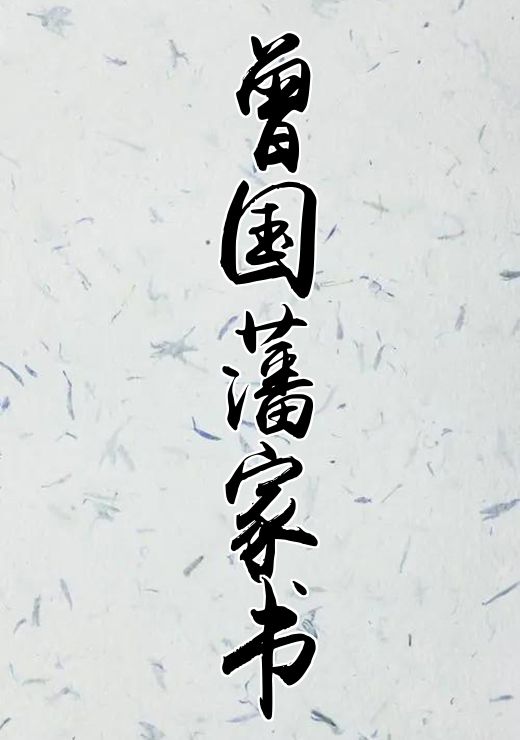 曾国藩家书